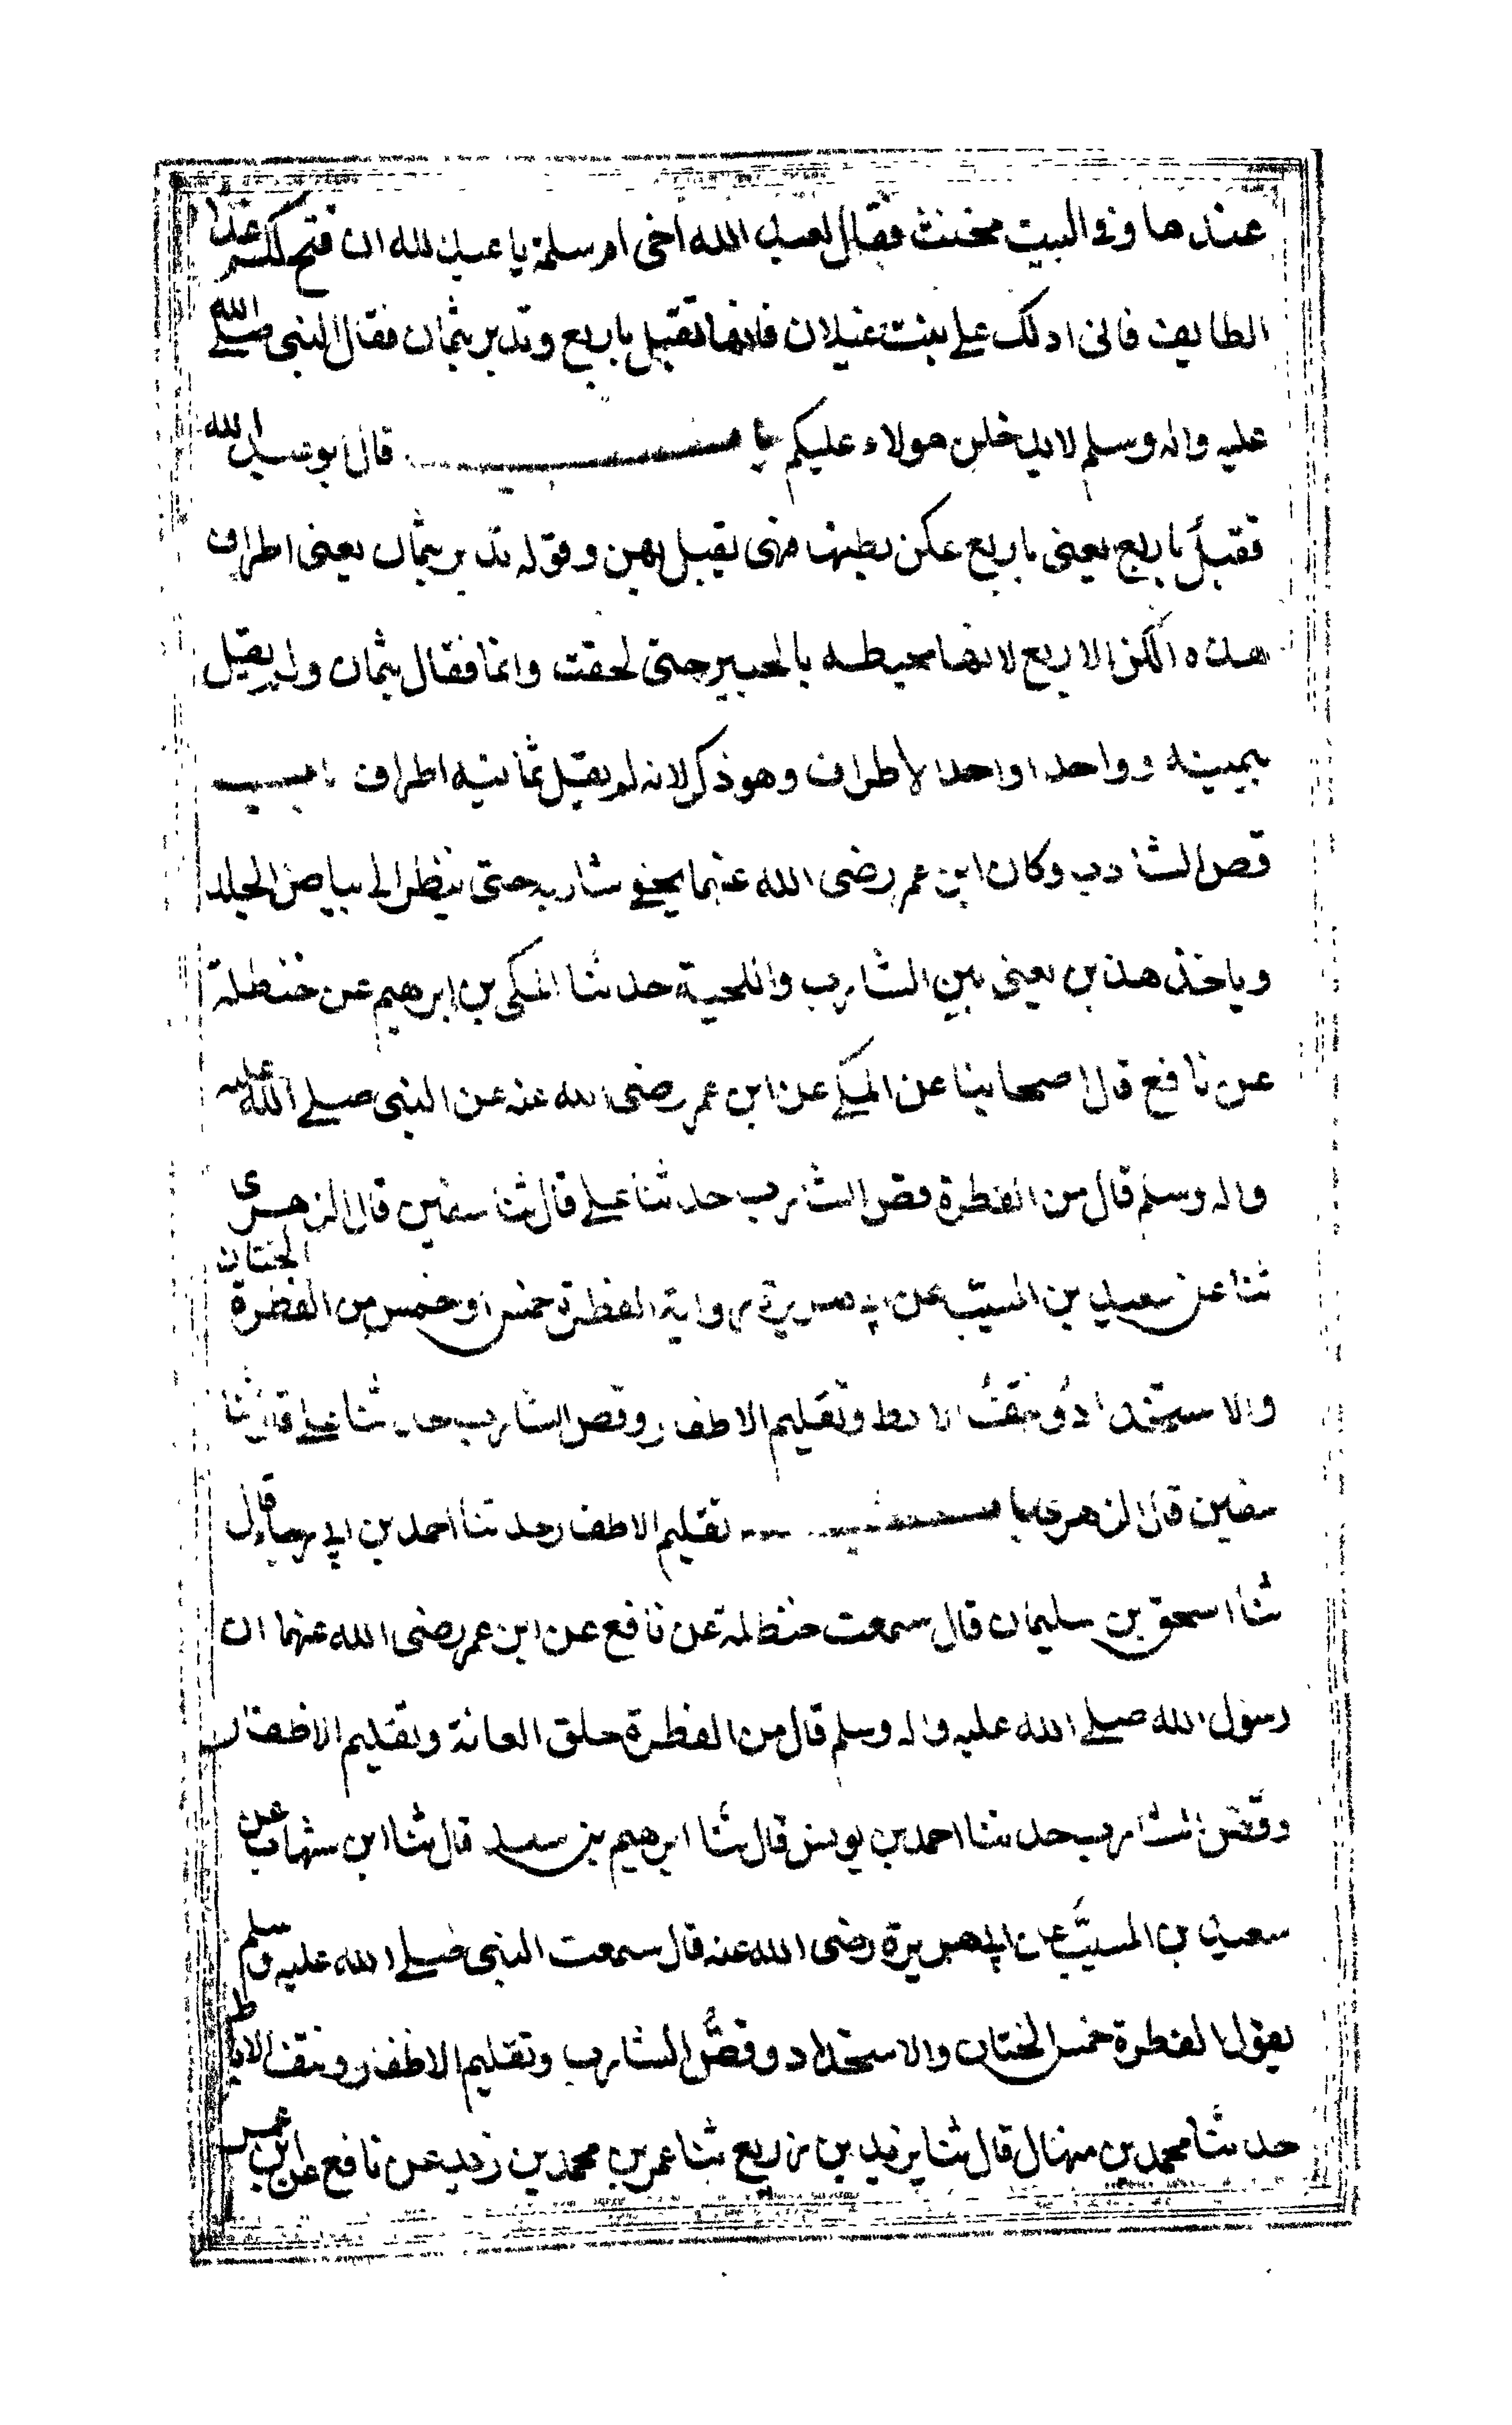 عندها وفى البيت مخنث فقال لعبد الله اخى ام سلمة يا عبد الله ان فتح لكم غدا
الطايف فانى ادلك على بنت غيلان فانها تقبل باربع وتدبر بثمان فقال النبى صلى الله
عليه واله وسلم لا يدخلن هولاء عليكم باب قال ابو عبد الله
تقبل باربع يعنى باربع عكن بطنها فهى تقبل بهن وقوله تدبر بثمان يعنى اطراف
هذه العكن الاربع لانها محيطه بالجبير حتى لحقت وانما فقال بثمان ولم يقل
بثمينه وواحد اواحدا لاطراف وهو ذكر لانه لم يقل ثمانيه اطراف باب
قص الشارب وكان ابن عمر رضى الله عنهما يحفى شاربه حتى ينظر الى بياض الجلد
وياخذ هذين يعنى بين الشارب واللحية حدثنا المكى بن ابرهيم عن حنظلة
عن نافع قال اصحابنا عن المكى عن ابن عمر رضى الله عنه عن النبى صلى الله عليه
واله وسلم قال من الفطرة قص الشارب حدثنا على قال ثنا سفين قال الزهرى
ثنا عن سعيد بن المسيب عن ابى هريرة رواية الفطرة خمس او خمس من الفطرة الختان
والاستحداد ونتف الابط وتقليم الاظفار وقص الشارب حدثنا على قال ثنا
سفين قال الزهرى باب تقليم الاظفار حدثنا احمد بن ابى رجاء قال
ثنا اسحق بن سليمان قال سمعت حنظلة عن نافع عن ابن عمر رضى الله عنهما ان
رسول الله صلى الله عليه واله وسلم قال من الفطرة حلق العانة وتقليم الاظفار
وقص الشارب حدثنا احمد بن يونس قال ثنا ابرهيم بن سعد قال ثنا ابن شهاب عن
سعيد بن المسيب عن ابى هريرة رضى الله عنه قال سمعت النبى صلى الله عليه وسلم
يقول الفطرة خمس الختان والاستحداد وقص الشارب وتقليم الاظفار ونتف الابط
حدثنا محمد بن منهال قال ثنا يزيد بن زريع ثنا عمر بن محمد بن زيد عن نافع عن ابن عمر